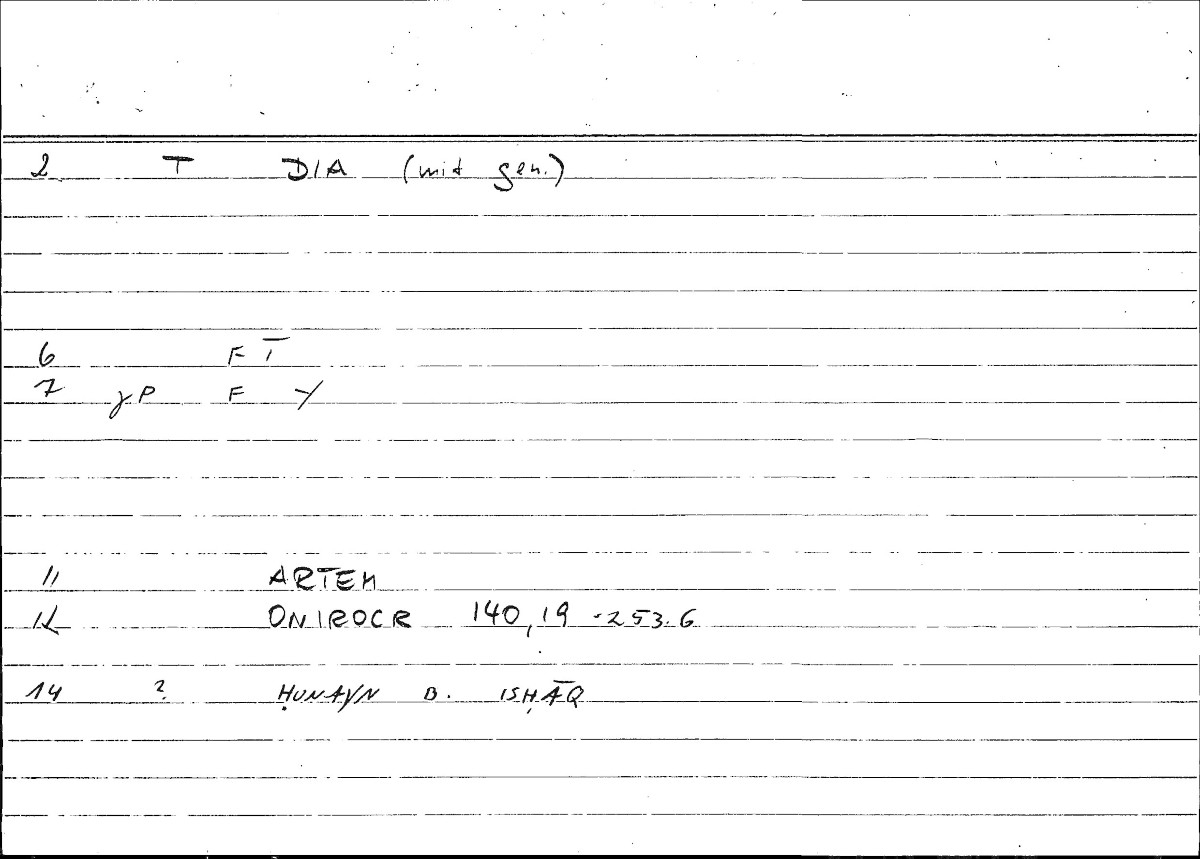 2 T DIA (mit gen.)
6 F Ī
7 γP F Y
11 ARTEM
12 ONIROCR 140,19 -253.6
14 ? ḤUNAYN B. ISḤĀQ